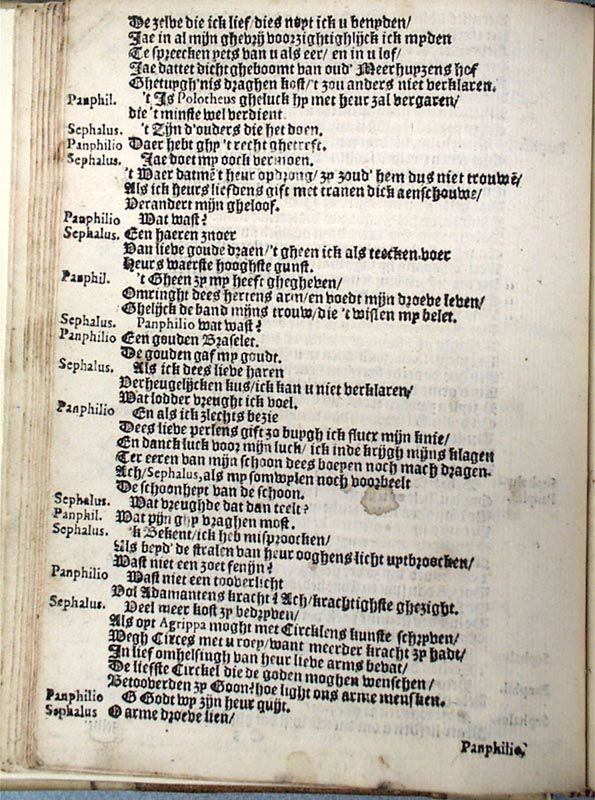 De zelve die ick lief/dies noyt ick u benyden/
Jae in al mijn ghevrij voorzightighlijck ick myden
Te spreecken yets van u als eer/ en in u lof/
Jae dattet dicht gheboomt van oud' Meerhuyzens hof
Ghetuygh'nis draghen kost/'t zou anders niet verklaren.
Panphil. 't Js Polotheus gheluck hy met heur zal vergaren/
die 't minste wel verdient.
Sephalus. 't Zijn d'ouders die het doen.
Panphilio Daer hebt ghy 't recht ghetreft.
Sephalus. Jae doet my oock vermoen.
't Waer datmē 't heur opdrong/ zy zoud' hem dus niet trouwē/
Als ick heurs liefdens gift met tranen dick aenschouwe/
Verandert mijn gheloof.
Panphilio Wat wast?
Sephalus. Een haeren snoer
Van lieve goude draen/'t gheen ick als teecken voer
Heurs waerste hooghste gunst.
Panphil. 't Gheen zy my heeft ghegheven/
Omringht dees hertens arm/en voedt mijn droeve leven/
Ghelijck de band mijns trouw/die 't wislen my belet.
Sephalus. Panphilio wat wast?
Panphilio Een gouden Braselet.
De gouden gaf my goudt.
Sephalus. Als ick dees lieve haren
Verheugelijcken kus/ick kan u niet verklaren/
Wat lodder vreught ick voel.
Panphilio En als ick slechts bezie
Dees lieve perlens gift zo buygh ick flucx mijn knie/
En danck luck voor mijn luck/ ick inde krijgh mijns klagen
Ter eeren van mijn schoon dees boeyen noch mach dragen.
Ach/Sephalus, als my somwylen noch voorbeelt
De schoonheyt van de schoon.
Sephalus. Wat vreughde dat dan teelt?
Panphil. Wat pijn ghy vraghen most.
Sephalus. 'k Bekent/ick heb misproocken/
Als beyd' de stralen van heur ooghens licht uytbroocken/
Wast niet een zoet fenijn?
Panphilio Wast niet een tooverlicht
Vol Adamantens kracht? Ach/krachtighste ghezight.
Sephalus. Veel meer kost zy bedryven/
Als oyt Agrippa moght met Circklens kunste schryven/
Wegh Circes met u roey/want meerder kracht zy hadt/
In lief omhelsingh van heur lieve arms bevat/
De liefste Circkel die de goden moghen wenschen/
Betooverden zy Goon? hoe light ons arme mensken.
Panphilio G Godt wy zijn heur quijt.
Sephalus O arme droeve lien/
Panphilio,